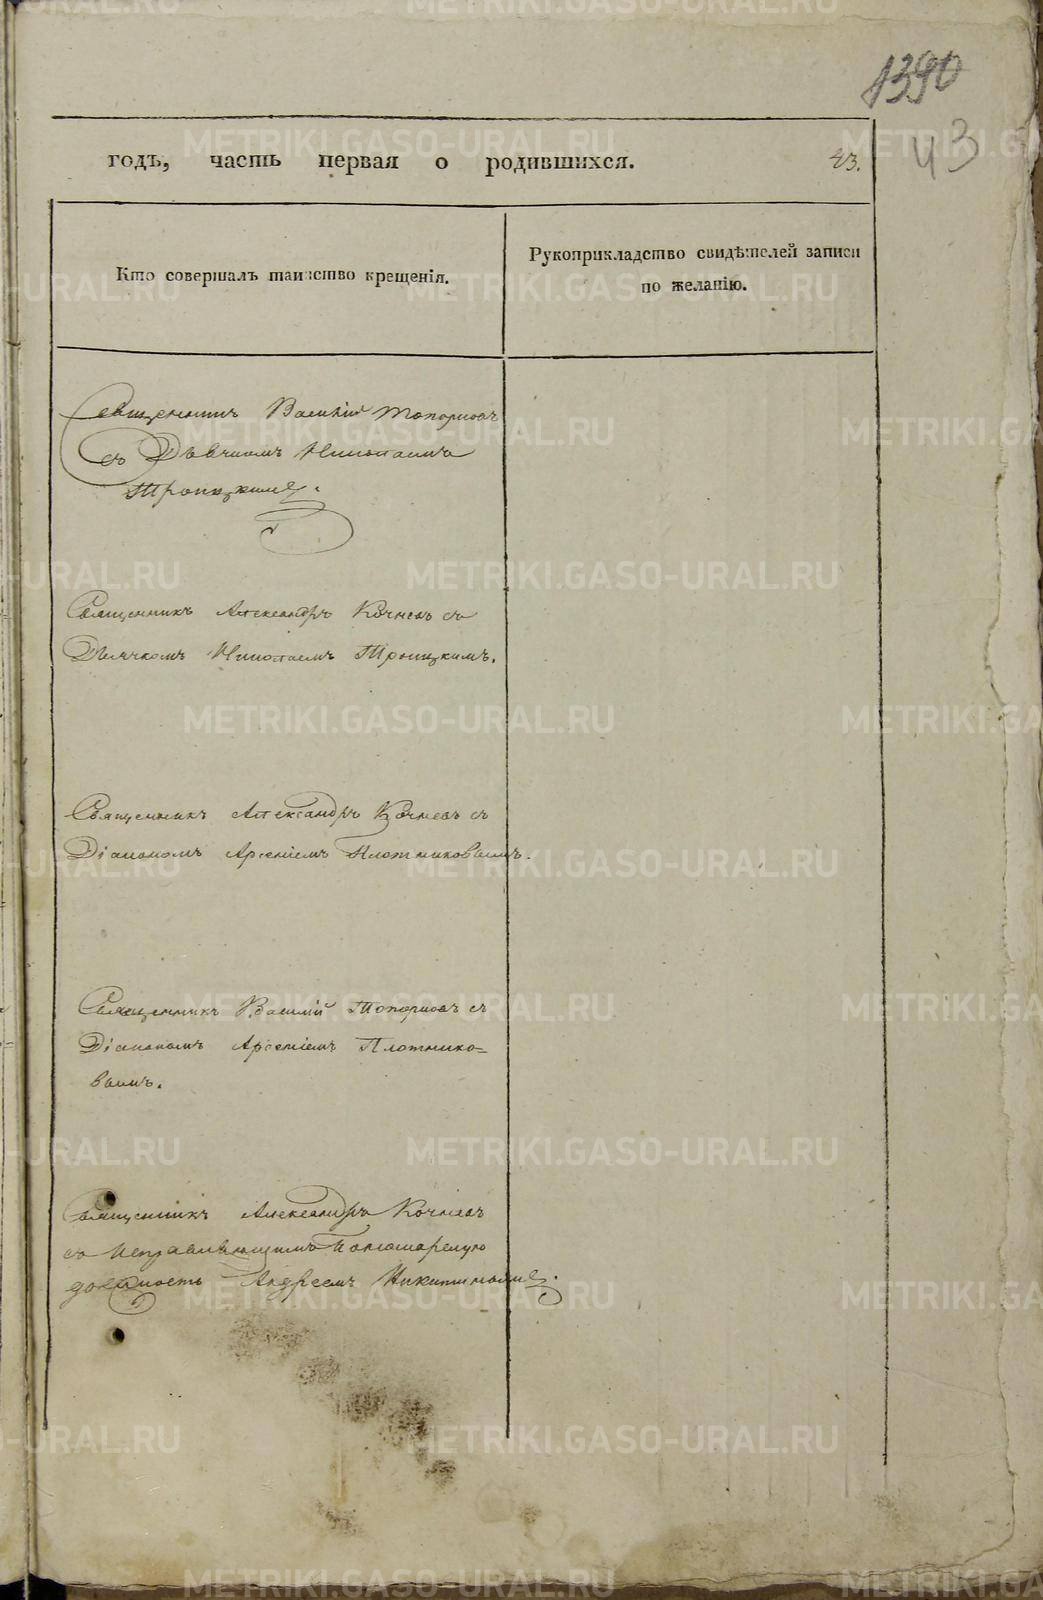 1390
43
годъ, часть первая о родившихся. 43.
Кто совершалъ таинство крещенія.
Рукоприкладство свидѣтелей записи
по желанію.
Священникъ Василій Топорковъ
съ Дьячкомъ Николаемъ
Троицкимъ.
Священникъ Александръ Кочневъ съ
Дьячкомъ Николаемъ Троицкимъ.
Священникъ Александръ Кочневъ съ
Діакономъ Арсеніемъ Плотниковымъ.
Священникъ Василій Топорковъ съ
Діакономъ Арсеніемъ Плотнико-
вымъ.
Священникъ Александръ Кочневъ
съ Исправляющимъ Пономарскую
должность Андреемъ Никитинымъ.
METRIKI.GASO-URAL.RU